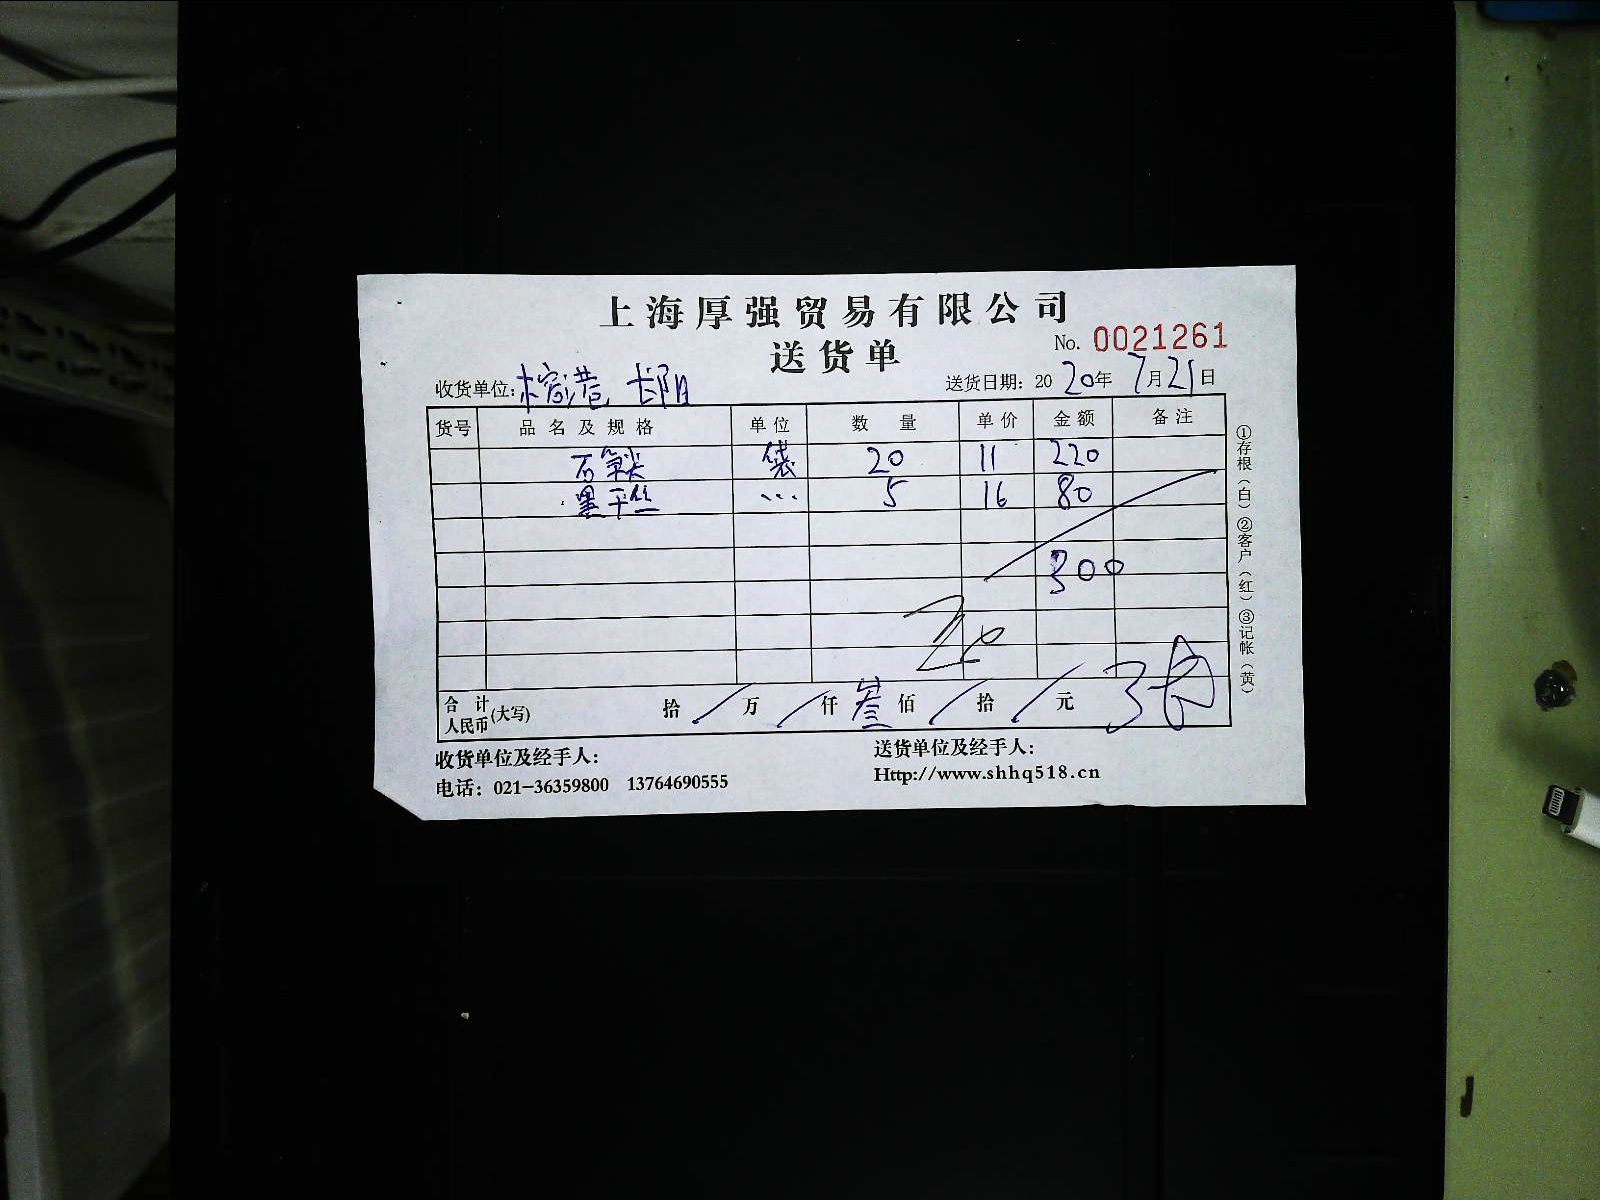 上海厚强贸易有限公司
送货单
No. 0021261
收货单位: 榕港 长阳
送货日期: 2020年7月21日
货号 品名及规格 单位 数量 单价 金额 备注
石 袋 20 11 220
黑平丝 ... 5 16 80
300
合计人民币(大写) 拾 / 万 / 仟 叁 佰 / 拾 / 元
①存根(白)②客户(红)③记帐(黄)
收货单位及经手人: 送货单位及经手人:
电话: 021-36359800 13764690555 Http://www.shhq518.cn